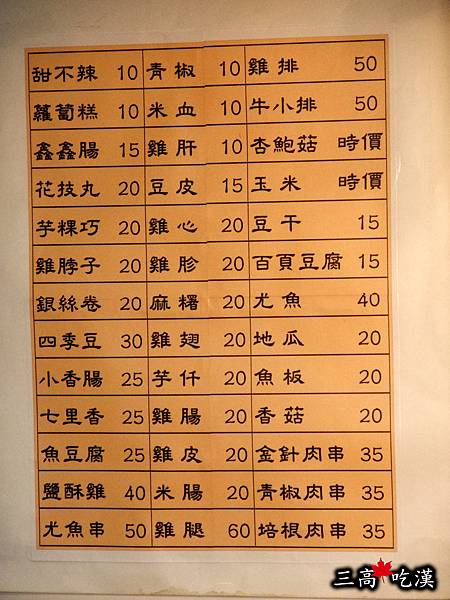 甜不辣 10 青椒 10 雞排 50
蘿蔔糕 10 米血 10 牛小排 50
鑫鑫腸 15 雞肝 10 杏鮑菇 時價
花技丸 20 豆皮 15 玉米 時價
芋粿巧 20 雞心 20 豆干 15
雞脖子 20 雞胗 20 百頁豆腐 15
銀絲卷 20 麻糬 20 尤魚 40
四季豆 30 雞翅 20 地瓜 20
小香腸 25 芋仟 20 魚板 20
七里香 25 雞腸 20 香菇 20
魚豆腐 25 雞皮 20 金針肉串 35
鹽酥雞 40 米腸 20 青椒肉串 35
尤魚串 50 雞腿 60 培根肉串 35
三高吃漢